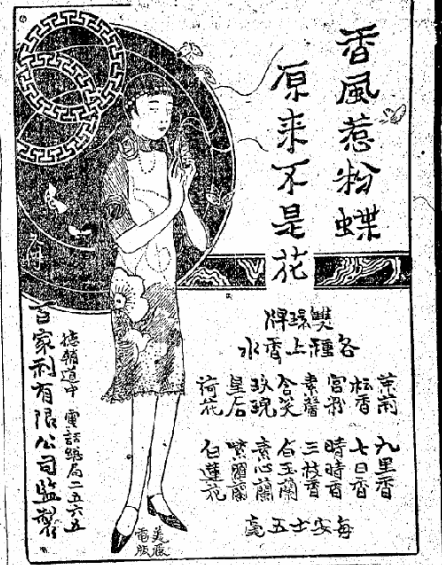 香風惹粉蝶
原来不是花
雙環牌
各種上香水
松香
宮粉
素馨
含笑
玫瑰
皇后
荷花
九里香
七日香
時時香
三枝香
白玉蘭
素心蘭
紫羅蘭
白蓮花
每安士五毫
德輔道中 電話總局二五六五
百家利有限公司監製
電版